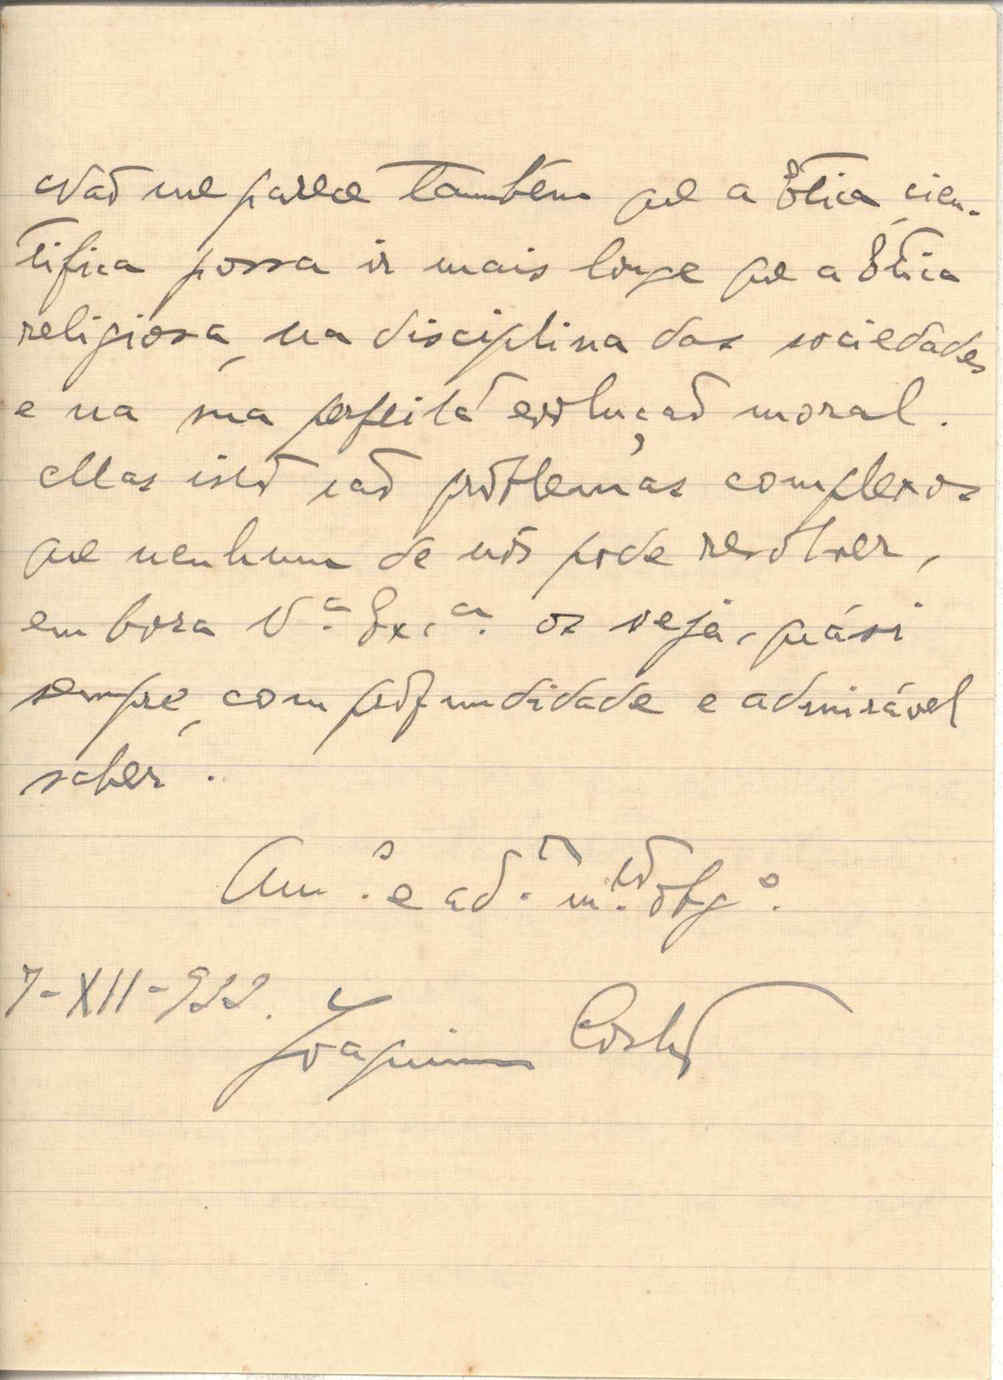 Não me parece também que a Ética cien-
tífica possa ir mais longe que a Ética
religiosa, na disciplina das sociedades
e na sua perfeita evolução moral.
Mas isto são problemas complexos
que nenhum de nós pode resolver,
embora V.ª Ex.cia os veja, quási
sempre, com profundidade e admirável
saber.
Am.º e ad.or m.to obg.º
7-XII-922.
Joaquim Costa